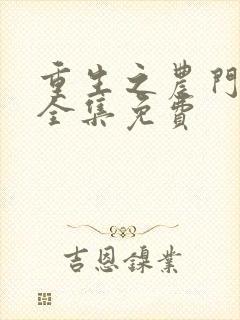 重生之農門
全集免費
吉恩鎳業